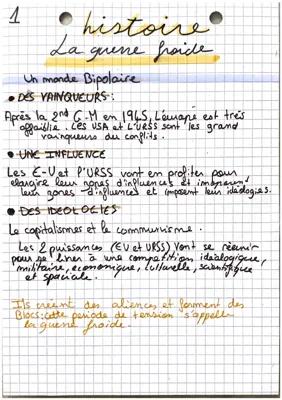 1
histoire
La guerre froide
Un monde Bipolaire
• DES VAINQUEURS :
Après la 2nd G.M en 1945, l'europe est très
affaiblie. Les USA et L'URSS sont les grand
vainqueurs du conflits.
• UNE INFLUENCE
Les E-U et l'URSS vont en profiter pour
élargire leur zones d'influences et imposent
leur zones d'influences et imposent leur idéologies.
• DES IDEOLOGIES
Le capitalismes et le communisme.
Les 2 puissances (EU et URSS) vont se réunir
pour se livrer à une compétition idéologique,
militaire, economique, culturelle, scientifique
et spaciale.
Ils créent des aliences et forment des
Blocs : cette periode de tension s'appelle
la guerre froide.